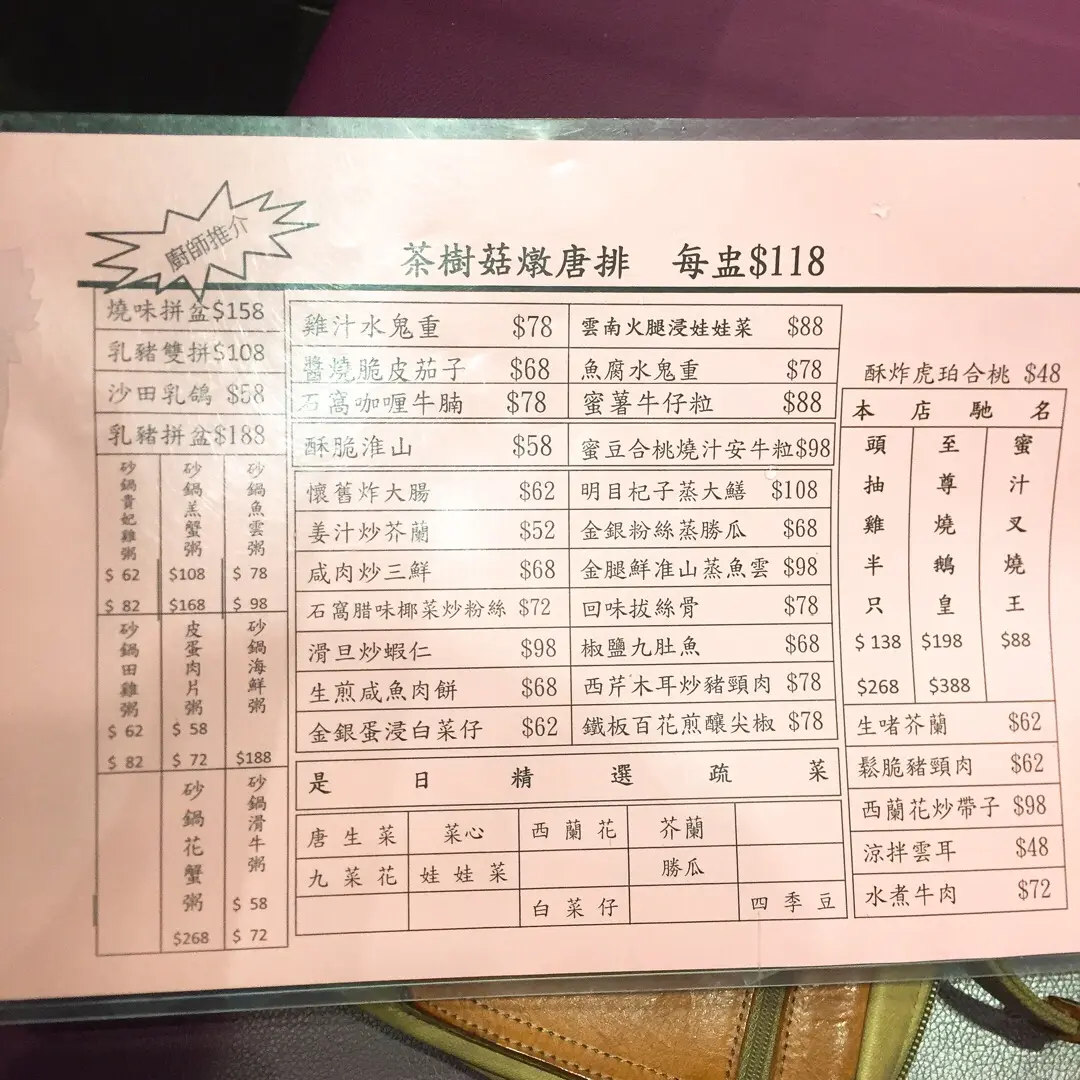 廚師推介
茶樹菇燉唐排 每盅$118
燒味拼盆$158
乳豬雙拼$108
沙田乳鴿 $58
乳豬拼盆$188
砂鍋貴妃雞粥
$ 62
$ 82
砂鍋羔蟹粥
$108
$168
砂鍋魚雲粥
$ 78
$ 98
砂鍋田雞粥
$ 62
$ 82
皮蛋肉片粥
$ 58
$ 72
砂鍋海鮮粥
$188
砂鍋花蟹粥
$268
砂鍋滑牛粥
$ 58
$ 72
雞汁水鬼重 $78
雲南火腿浸娃娃菜 $88
醬燒脆皮茄子 $68
魚腐水鬼重 $78
石窩咖喱牛腩 $78
蜜薯牛仔粒 $88
酥脆淮山 $58
蜜豆合桃燒汁安牛粒$98
懷舊炸大腸 $62
明目杞子蒸大鱔 $108
姜汁炒芥蘭 $52
金銀粉絲蒸勝瓜 $68
咸肉炒三鮮 $68
金腿鮮淮山蒸魚雲 $98
石窩腊味椰菜炒粉絲 $72
回味拔絲骨 $78
滑旦炒蝦仁 $98
椒鹽九肚魚 $68
生煎咸魚肉餅 $68
西芹木耳炒豬頸肉 $78
金銀蛋浸白菜仔 $62
鐵板百花煎釀尖椒 $78
是日精選疏菜
唐生菜 菜心 西蘭花 芥蘭
九菜花 娃娃菜 勝瓜
白菜仔 四季豆
酥炸虎珀合桃 $48
本店馳名
頭抽雞半只
$ 138
$268
至尊燒鵝皇
$198
$388
蜜汁叉燒王
$88
生啫芥蘭 $62
鬆脆豬頸肉 $62
西蘭花炒帶子 $98
涼拌雲耳 $48
水煮牛肉 $72